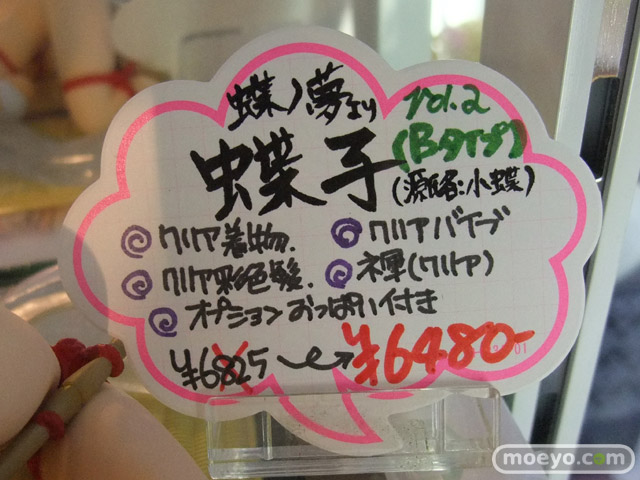 蝶ノ夢より
vol.2
(Bタイプ)
蝶子
(源氏名:小蝶)
クリア着物.
クリアバイブ
クリア彩色髪.
褌(クリア)
オプションおっぱい付き
¥6825
¥6480-
01
moeyo.com